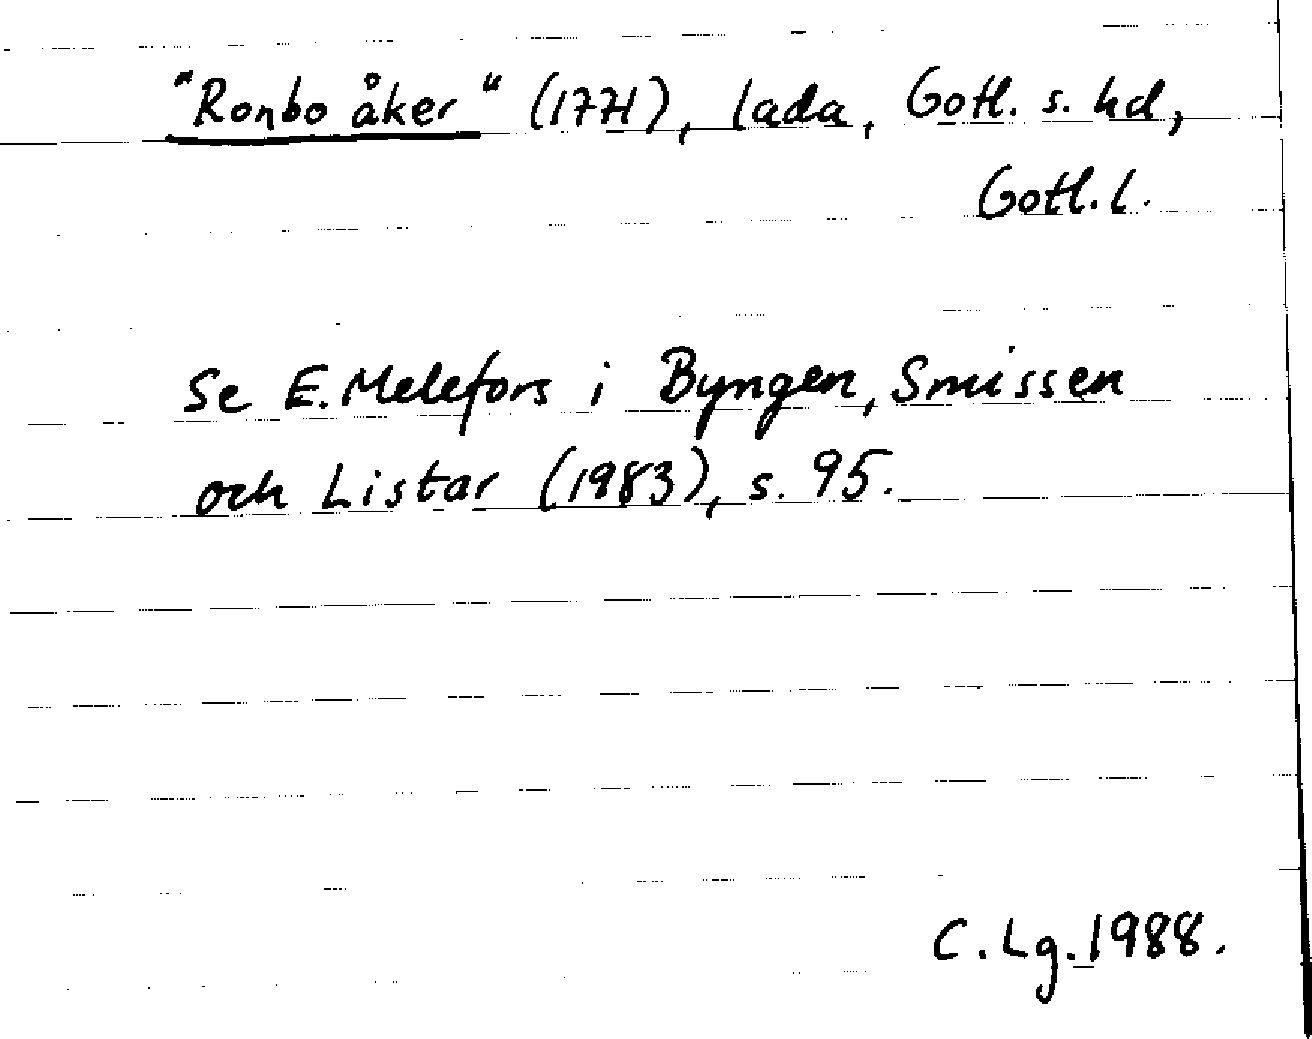 "Ronbo åker" (1771), lada, Gotl. s. hd,
Gotl. l.
Se E. Melefors i Byngen, Smissen
och Listar (1983), s. 95.
C. Lg. 1988.